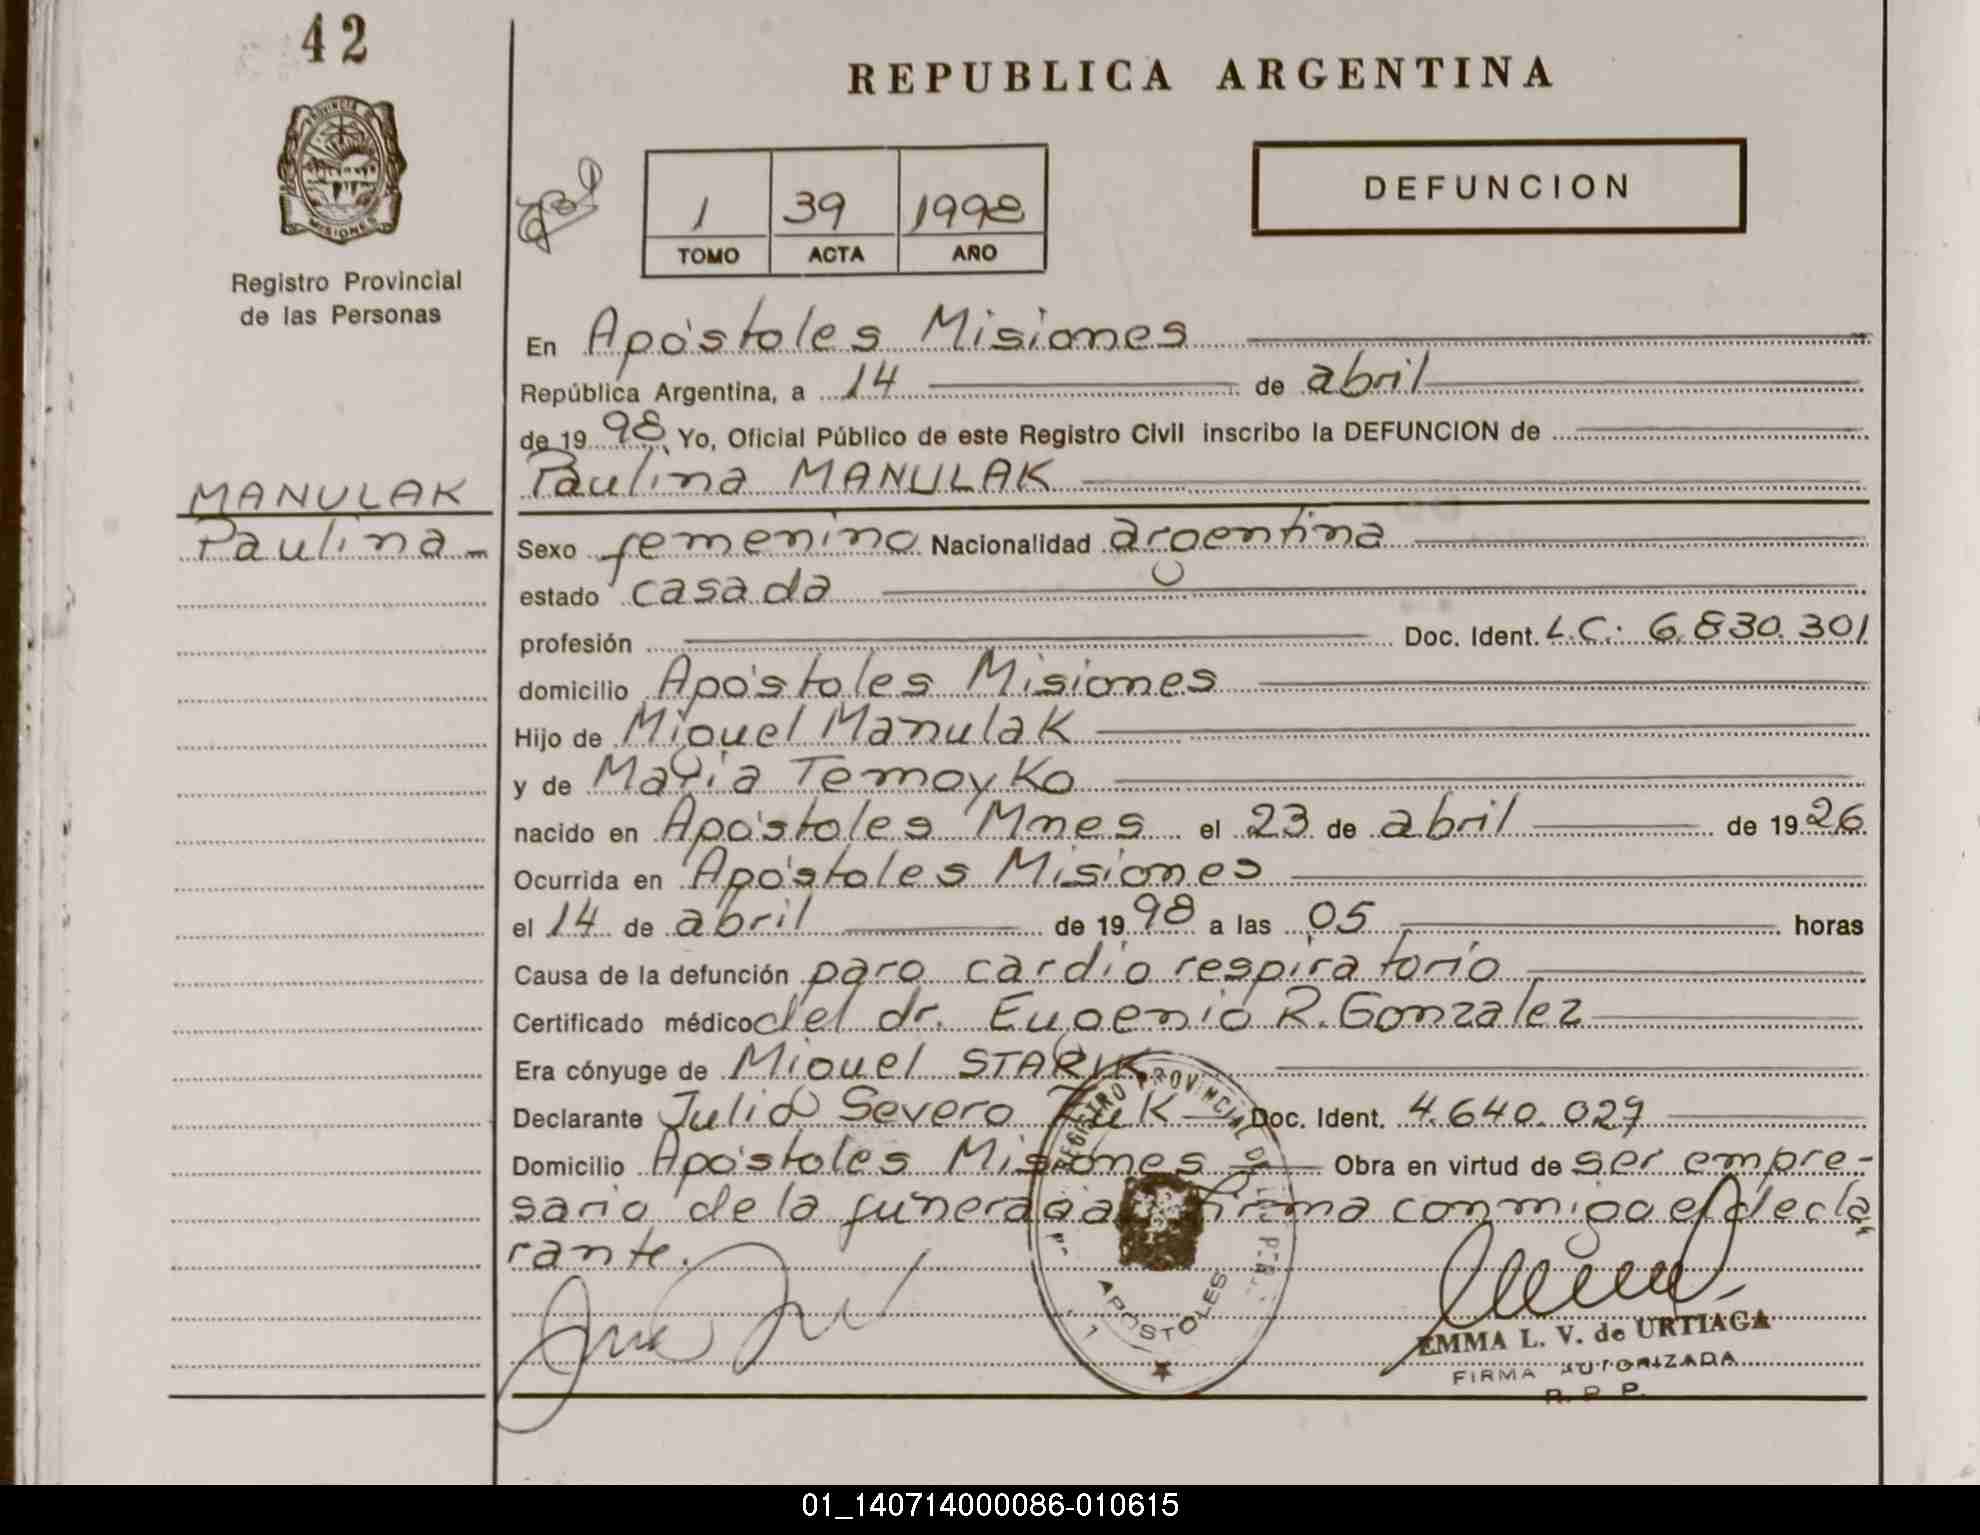 42
REPUBLICA ARGENTINA
DEFUNCION
1 39 1998
TOMO ACTA AÑO
PROVINCIA DE
MISIONES
Registro Provincial
de las Personas
En Apóstoles Misiones
República Argentina, a 14 de abril
de 19 98 Yo, Oficial Público de este Registro Civil inscribo la DEFUNCION de
MANULAK
Paulina MANULAK
Paulina -
Sexo femenino Nacionalidad argentina
estado casada
profesión Doc. Ident. L.C: 6.830.301
domicilio Apóstoles Misiones
Hijo de Miguel Manulak
y de María Temoyko
nacido en Apóstoles Mnes el 23 de abril de 19 26
Ocurrida en Apóstoles Misiones
el 14 de abril de 19 98 a las 05 horas
Causa de la defunción paro cardio respiratorio
Certificado médico del dr. Eugenio R. Gonzalez
Era cónyuge de Miguel STARUK
Declarante Julio Severo Zuk Doc. Ident. 4.640.029
Domicilio Apóstoles Misiones Obra en virtud de ser empre-
sario de la funeraria firma conmigo el decla
rante.
REGISTRO PROVINCIAL DE
APOSTOLES
EMMA L. V. de URTIAGA
FIRMA AUTORIZADA
R. P. P.
01_140714000086-010615